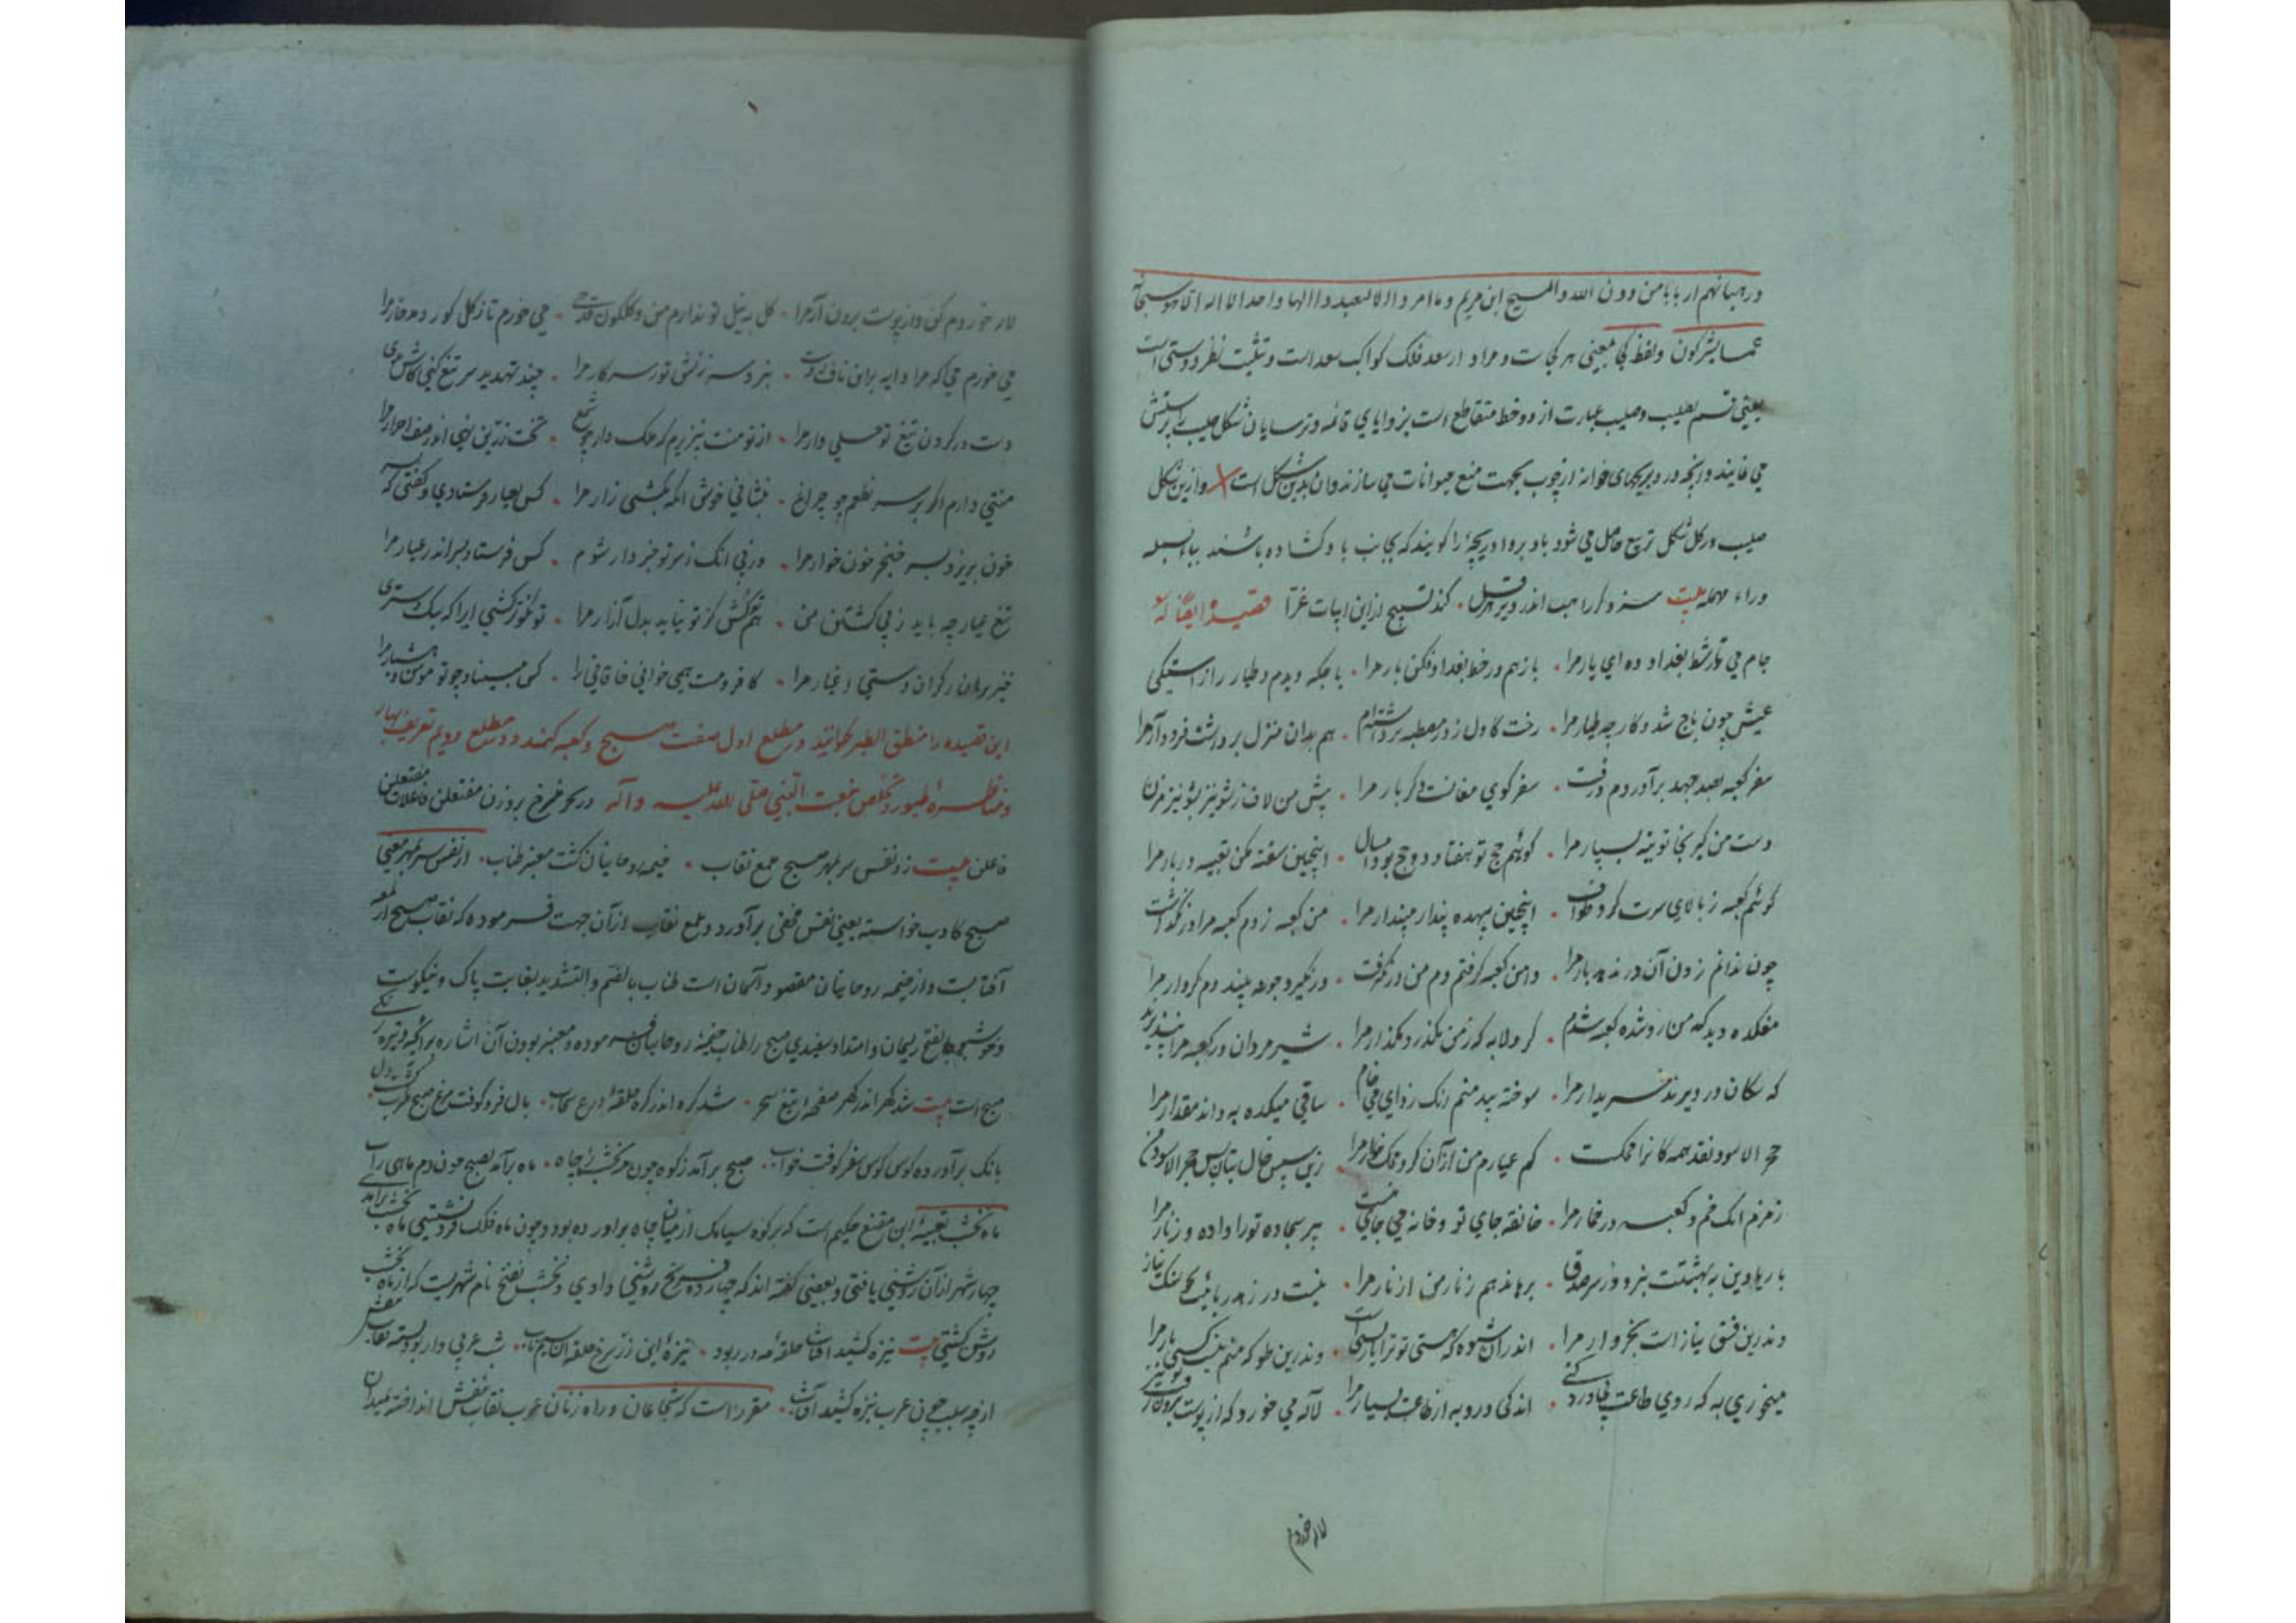 ورهبانهم اربابا من دون الله والمسیح ابن مریم و ما امروا الا لیعبدوا الها واحدا لا اله الا هو سبحانه
عما یشرکون ولفظ کجا بمعنی هر کجاست و مراد از سعد فلک کواکب سعد است و تثلیث نظر دوستی است
یعنی قسم بصلیب و صلیب عبارت از دو خط متقاطع است بزوایای قائمه و ترسایان شکل صلیب را پرستش
می نمایند و آنچه در دریچهای خانه از چوب بجهت منع حیوانات می سازند و آن بدین شکل است و ازین شکل
صلیب در کل شکل تربیع حاصل می شود بادبروا دریچۀ را گویند که بجانب باد گشاده باشند بباء بسمله
وراء مهمله بیت سزد گر راهب اندر دیر هرقل ۰ کند تسبیح ازین ابیات غرّا قصیدۀ ایضا له
جام می تا خط بغداد ده ای یار مرا ۰ باز هم در خط بغداد فکن بار مرا ۰ باجگه دیدم و طیار ز آراستگی
عیش چون باج شد و کار چو طیار مرا ۰ رخت کاول ز در مصطبه برداشتم ۰ هم بدان منزل برداشت فرود آر مرا
سفر کعبه بصد جهد برآوردم و رفت ۰ سفر کوی مغانست دگر بار مرا ۰ پیش من لاف ز شونیز شونیز مزن
دست من گیر و بخاتونیه بسپار مرا ۰ گوئیم حج تو هفتاد و دو حج بود امسال ۰ اینچنین سفته مکن تعبیه در بار مرا
گوئیم کعبه ز بالای سرت کرد طواف ۰ اینچنین بیهده پندار مپندار مرا ۰ من در کعبه زدم کعبه مرا در نگذاشت
چون ندانم زدن آن در ندهد بار مرا ۰ دامن کعبه گرفتم دم من در نگرفت ۰ درنگیرد چو نبیند دم کردار مرا
مغکده دید که من رد شده کعبه شدم ۰ کرد لابه که ز من مگذر و مگذار مرا ۰ شیر مردان در کعبه مرا نپذیرند
که سگان در دیرند خریدار مرا ۰ سوخته بید منم زنگ زدای می خام ۰ ساقی میکده به داند مقدار مرا
حجر الاسود نقد همه کانرا محکست ۰ کم عیارم من از آن کرد محک خوار مرا ۰ زین سپس خال بتان بس حجر الاسود من
زمزم آنک خم و کعبه در خمار مرا ۰ خانقه جای تو و خانه می جای منست ۰ پیر سجاده ترا داده و زنار مرا
با ریا دین به بهشتت نبرد وز سر صدق ۰ برهاند هم زنار من از نار مرا ۰ نیست در زهد ریائی بجو سنگ نیاز
وندرین فسق نیاز است بخروار مرا ۰ اندر آن شیوه که هستی تو ترا یار بسیست ۰ وندرین طو که منم نیست کسی یار مرا
میخوری به که روی طاعت بی درد کنی ۰ اندکی درد به از طاعت بسیار مرا ۰ لاله می خورد که از پوست برون رفت تو نیز
لاله خوردم
لاله خوردم کن و از پوست برون آر مرا ۰ گل به نیل تو ندارم من و گلگون قدحی ۰ می خورم تا ز گل گور دمد خار مرا
می خورم می که مرا دایه بر این ناف زدست ۰ نبرد سرزنش تو ز سر کار مرا ۰ چند تهدید سر تیغ کنی کاش بدی
دست در گردن تیغ تو حمایل وارا ۰ از تو منت بپذیرم که ملک وار چو شمع ۰ تخت زرین نهی اندر صف احرار مرا
منتی دارم اگر بر سر نطعم چو چراغ ۰ بنشانی خوش آنگه بکشی زار مرا ۰ کس بعیار فرستادی و گفتی که به سر
خون بریزد بسر خنجر خونخوار مرا ۰ در پی آنک ز سر تو خبردار شوم ۰ کس فرستاد بسر اندر عیار مرا
تیغ عیار چه باید ز پی کشتن من ۰ هم تو کش کز تو نیاید بدل آزار مرا ۰ تو نکوتر کشی ایرا که سبک دستتری
خیز برهان ز گران دستی اغیار مرا ۰ کافر و مست همی خوانی خاقانی را ۰ کس مبیناد چو تو مؤمن و هشیار مرا
این قصیده را منطق الطیر خوانند در مطلع اول صفت صبح و کعبه کند و در مطلع دویم تعریف بهار
و مناظرۀ طیور و تخلص بنعت النبی صلی الله علیه و آله در بحر منسرح بر وزن مفتعلن فاعلات مفتعلن
فاعلن بیت زد نفس سر بمهر صبح ملمع نقاب ۰ خیمه روحانیان گشت معنبر طناب ۰ از نفس سر بمهر معنی
صبح کاذب خواسته یعنی نفس مخفی برآورد و ملمع نقاب از آن جهت فرموده که نقاب صبح از لمعه
آفتابست و از خیمه روحانیان مقصود آسمان است طناب بالضم والتشدید بغایت پاک و نیکوست
و خوشبو بالفتح ریسمان و امتداد سفیدی صبح را طناب خیمۀ روحانیان فرموده و معنبر بودن آن اشاره
صبح است بیت شد گهر اندر گهر صفحۀ تیغ سحر ۰ شد گره اندر گره حلقۀ درع سحاب ۰ بال فرو کوفت مرغ مرغ طرب گشت دل
بانک برآورد کوس کوس سفر کوفت خواب ۰ صبح برآمد ز کوه چون مه نخشب ز چاه ۰ ماه برآمد بصبح چون دم ماهی ز آب
ماه نخشب تعبیۀ ابن مقنع حکیم است که بر کوه سیامک از میان چاه برآورده بود و چون ماه فلک فرو نشستی ماه نخشب برآمدی
چهار شهر از آن روشنی یافتی و بعضی گفته اند که چهارده فرسخ روشنی دادی و نخشب بفتح نام شهریست که از ماه نخشب
روشن گشتی بیت نیزه کشید آفتاب حلقۀ مه در ربود ۰ نیزۀ این زر سرخ حلقۀ آن سیم ناب ۰ شب عربی وار بود بسته نقاب بنفش
از چه سبب چون عرب نیزه کشید آفتاب ۰ مقرر است که شجاعان و راه زنان عرب نقاب بنفش انداخته بمیدان